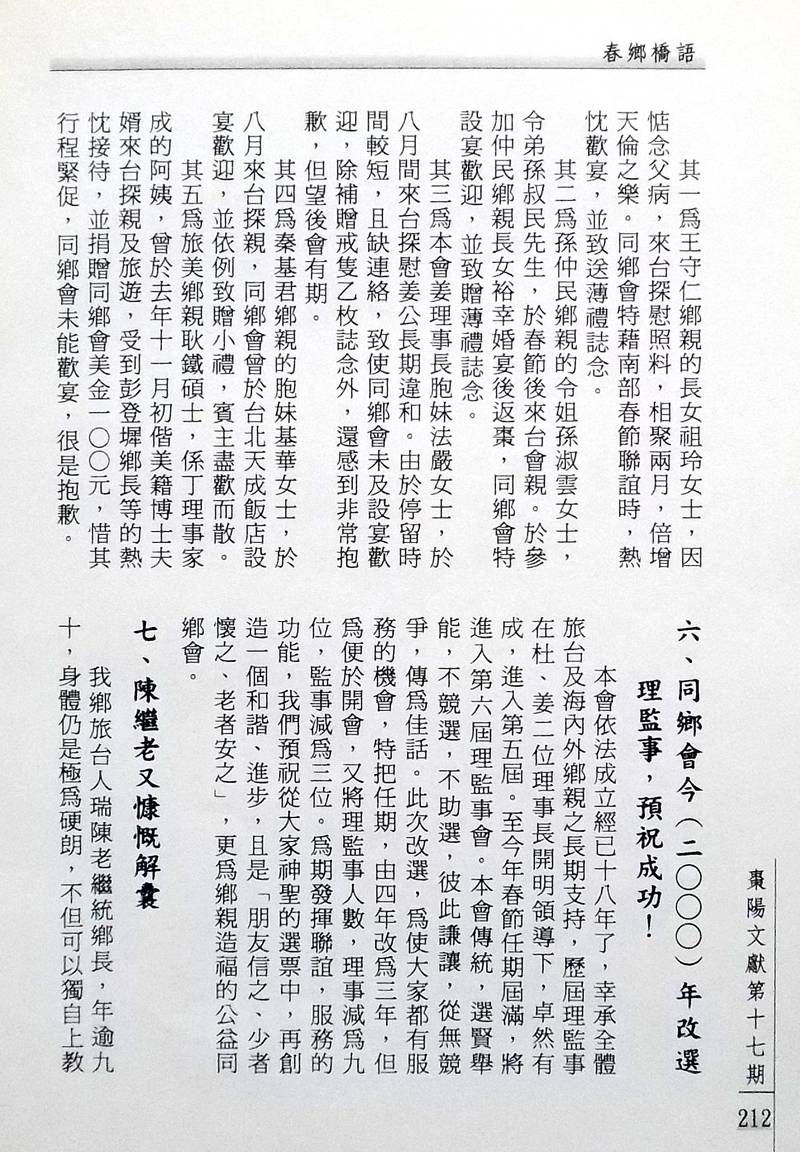 春鄉橋語
其一爲王守仁鄉親的長女祖玲女士，因
惦念父病，來台探慰照料，相聚兩月，倍增
天倫之樂。同鄉會特藉南部春節聯誼時，熱
忱歡宴，並致送薄禮誌念。
其二爲孫仲民鄉親的令姐孫淑雲女士，
令弟孫叔民先生，於春節後來台會親。於參
加仲民鄉親長女裕幸婚宴後返棗，同鄉會特
設宴歡迎，並致贈薄禮誌念。
其三爲本會姜理事長胞妹法嚴女士，於
八月間來台探慰姜公長期違和。由於停留時
間較短，且缺連絡，致使同鄉會未及設宴歡
迎，除補贈戒隻乙枚誌念外，還感到非常抱
歉，但望後會有期。
其四爲秦基君鄉親的胞妹基華女士，於
八月來台探親，同鄉會曾於台北天成飯店設
宴歡迎，並依例致贈小禮，賓主盡歡而散。
其五爲旅美鄉親耿鐵碩士，係丁理事家
成的阿姨，曾於去年十一月初偕美籍博士夫
婿來台探親及旅遊，受到彭登墀鄉長等的熱
忱接待，並捐贈同鄉會美金一〇〇元，惜其
行程緊促，同鄉會未能歡宴，很是抱歉。
六、同鄉會今（二〇〇〇）年改選
理監事，預祝成功！
本會依法成立經已十八年了，幸承全體
旅台及海內外鄉親之長期支持，歷屆理監事
在杜、姜二位理事長開明領導下，卓然有
成，進入第五屆。至今年春節任期屆滿，將
進入第六屆理監事會。本會傳統，選賢舉
能，不競選，不助選，彼此謙讓，從無競
爭，傳爲佳話。此次改選，爲使大家都有服
務的機會，特把任期，由四年改爲三年，但
爲便於開會，又將理監事人數，理事減爲九
位，監事減爲三位。爲期發揮聯誼，服務的
功能，我們預祝從大家神聖的選票中，再創
造一個和諧、進步，且是「朋友信之、少者
懷之、老者安之」，更爲鄉親造福的公益同
鄉會。
七、陳繼老又慷慨解囊
我鄉旅台人瑞陳老繼統鄉長，年逾九
十，身體仍是極爲硬朗，不但可以獨自上教
棗陽文獻第十七期
212